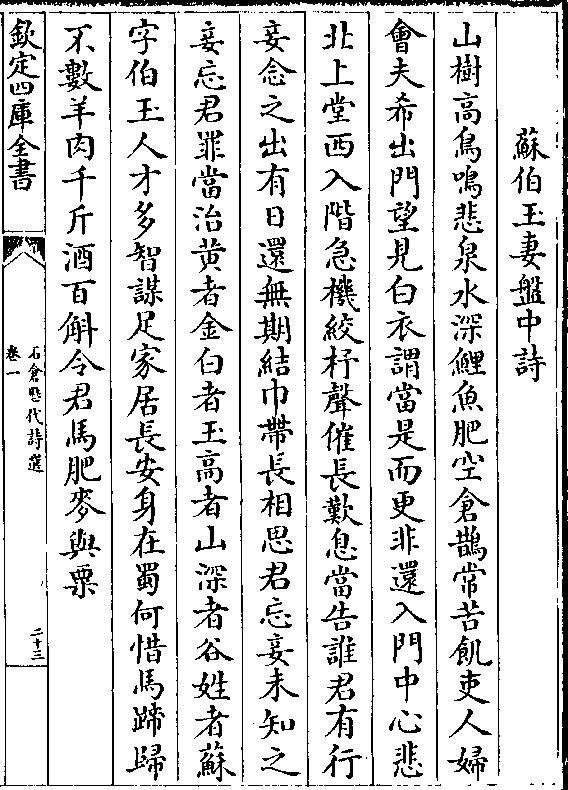 蘇伯玉妻盤中詩
山樹高鳥鳴悲泉水深鯉魚肥空倉鵲常苦飢吏人婦
會夫希出門望見白衣謂當是而更非還入門中心悲
北上堂西入階急機絞杼聲催長歎息當告誰君有行
妾念之出有日還無期結巾帶長相思君忘妾未知之
妾忘君罪當治黄者金白者玉高者山深者谷姓者蘇
字伯玉人才多智謀足家居長安身在蜀何惜馬蹄歸
不數羊肉千斤酒百斛令君馬肥麥與粟
欽定四庫全書
石倉歴代詩選
卷一
二十三